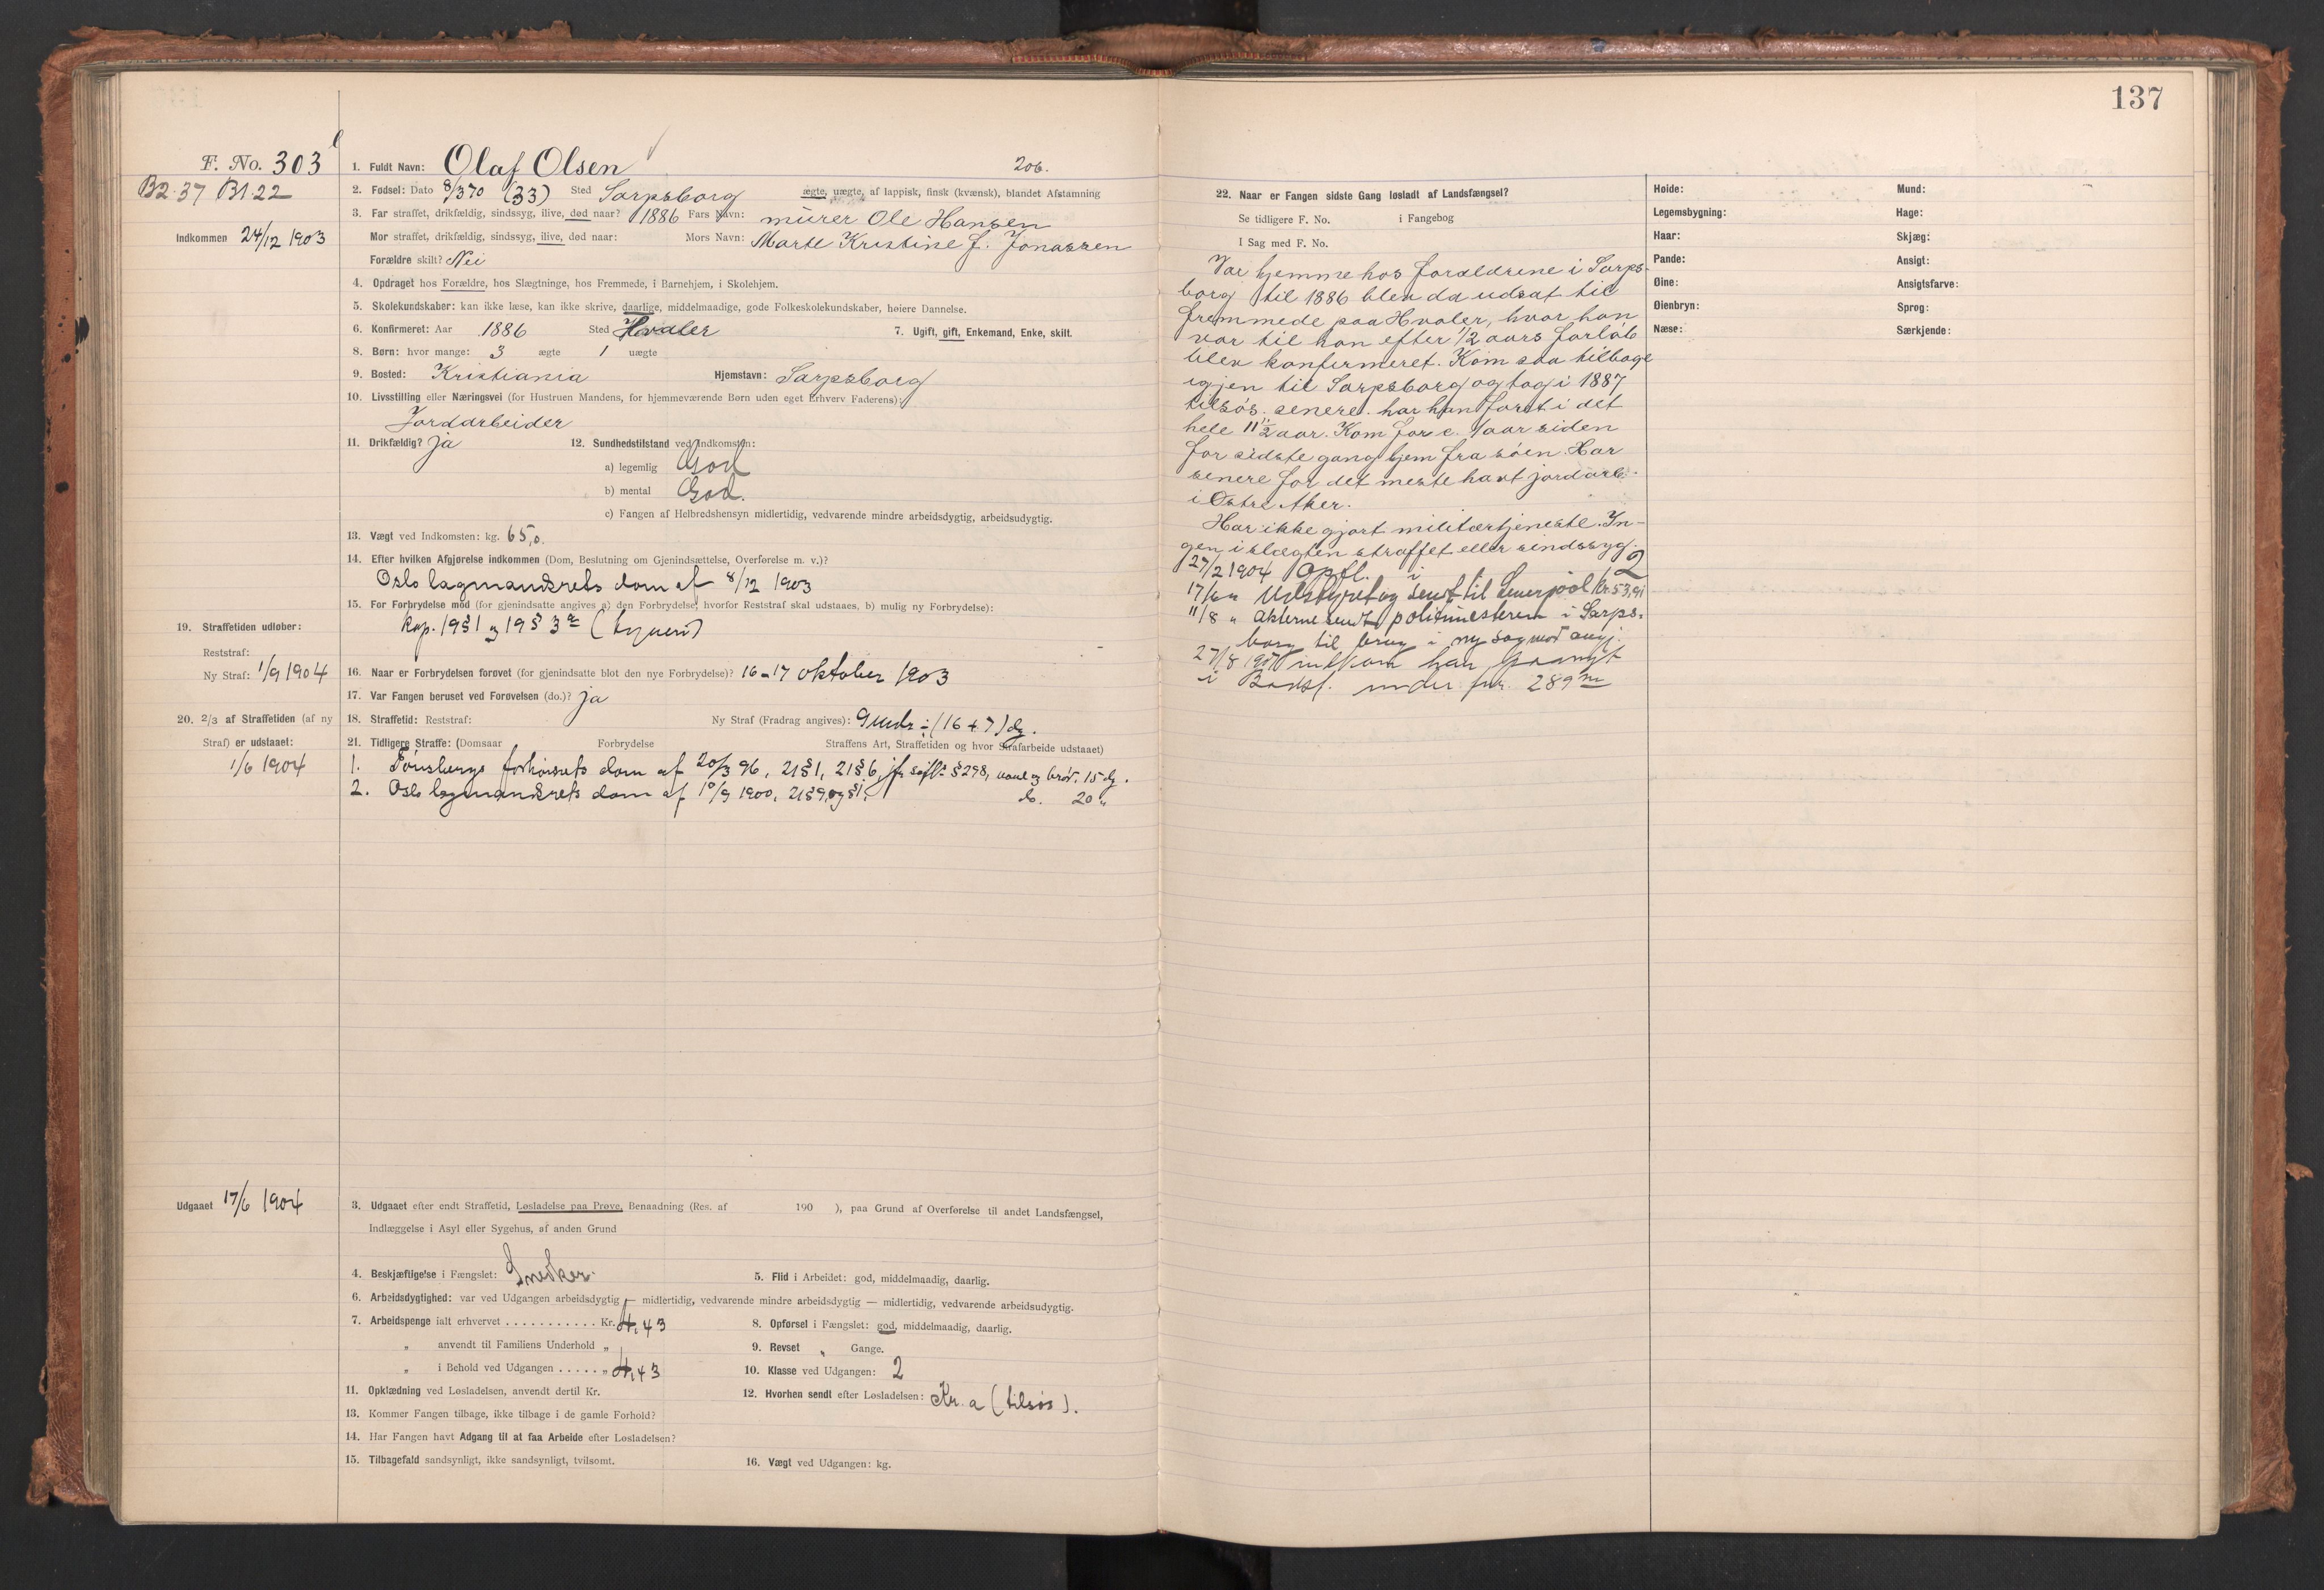 137
F. No. 303
B2·37 B1·22
Indkommen 24/12 1903
1. Fuldt Navn: Olaf Olsen 206.
2. Fødsel: Dato 8/3 70 (33) Sted Sarpsborg ægte, uægte, af lappisk, finsk (kvænsk), blandet Afstamning
3. Far straffet, drikfældig, sindssyg, ilive, død naar? 1886 Fars Navn: murer Ole Hansen
Mor straffet, drikfældig, sindssyg, ilive, død naar: Mors Navn: Marte Kristine f. Jonassen
Forældre skilt? Nei
4. Opdraget hos Forældre, hos Slægtninge, hos Fremmede, i Barnehjem, i Skolehjem.
5. Skolekundskaber: kan ikke læse, kan ikke skrive, daarlige, middelmaadige, gode Folkeskolekundskaber, høiere Dannelse.
6. Konfirmeret: Aar 1886 Sted Hvaler 7. Ugift, gift, Enkemand, Enke, skilt.
8. Børn: hvor mange: 3 ægte 1 uægte
9. Bosted: Kristiania Hjemstavn: Sarpsborg
10. Livsstilling eller Næringsvei (for Hustruen Mandens, for hjemmeværende Børn uden eget Erhverv Faderens):
Jordarbeider
11. Drikfældig? ja 12. Sundhedstilstand ved Indkomsten:
a) legemlig God
b) mental God.
c) Fangen af Helbredshensyn midlertidig, vedvarende mindre arbeidsdygtig, arbeidsudygtig.
13. Vægt ved Indkomsten: kg. 65,0.
14. Efter hvilken Afgjørelse indkommen (Dom, Beslutning om Gjenindsættelse, Overførelse m. v.)?
Oslo lagmandsrets dom af 8/12 1903
15. For Forbrydelse mod (for gjenindsatte angives a) den Forbrydelse, hvorfor Reststraf skal udstaaes, b) mulig ny Forbrydelse):
kap. 19 § 1 og 19 § 3 (tyveri)
19. Straffetiden udløber:
Reststraf:
Ny Straf: 1/9 1904
16. Naar er Forbrydelsen forøvet (for gjenindsatte blot den nye Forbrydelse)? 16-17 oktober 1903
17. Var Fangen beruset ved Forøvelsen (do.)? ja
20. 2/3 af Straffetiden (af ny
Straf) er udstaaet:
1/6 1904
18. Straffetid: Reststraf: Ny Straf (Fradrag angives): 9 mdr ÷ (16+7) dg.
21. Tidligere Straffe: (Domsaar Forbrydelse Straffens Art, Straffetiden og hvor Strafarbeide udstaaet)
1. Tønsbergs forhørsrets dom af 20/3 96, 21 § 1, 21 § 6, jfr § 298, vand og brød. 15 dg.
2. Oslo lagmandsrets dom af 10/9 1900, 21 § 9 og § 1, do. 20 "
Udgaaet 17/6 1904
3. Udgaaet efter endt Straffetid, Løsladelse paa Prøve, Benaadning (Res. af 190 ), paa Grund af Overførelse til andet Landsfængsel,
Indlæggelse i Asyl eller Sygehus, af anden Grund
4. Beskjæftigelse i Fængslet: Snedker 5. Flid i Arbeidet: god, middelmaadig, daarlig.
6. Arbeidsdygtighed: var ved Udgangen arbeidsdygtig — midlertidig, vedvarende mindre arbeidsdygtig — midlertidig, vedvarende arbeidsudygtig.
7. Arbeidspenge ialt erhvervet . . . . . . . . . . . Kr. 4,43 8. Opførsel i Fængslet: god, middelmaadig, daarlig.
" anvendt til Familiens Underhold " 9. Revset " Gange.
" i Behold ved Udgangen . . . . . " 4,43 10. Klasse ved Udgangen: 2
11. Opklædning ved Løsladelsen, anvendt dertil Kr. 12. Hvorhen sendt efter Løsladelsen: Kr.a (tilsøs).
13. Kommer Fangen tilbage, ikke tilbage i de gamle Forhold?
14. Har Fangen havt Adgang til at faa Arbeide efter Løsladelsen?
15. Tilbagefald sandsynligt, ikke sandsynligt, tvilsomt. 16. Vægt ved Udgangen: kg.
22. Naar er Fangen sidste Gang løsladt af Landsfængsel?
Se tidligere F. No. i Fangebog
I Sag med F. No.
Var hjemme hos forældrene i Sarps-
borg til 1886 blev da udsat til
fremmede paa Hvaler, hvor han
var til han efter 1/2 aars forløb
blev konfirmeret. Kom saa tilbage
igjen til Sarpsborg og tog i 1887
tilsøs. senere. har han faret i det
hele 11 1/2 aar. Kom for c. 1 aar siden
for sidste gang hjem fra søen. Har
senere for det meste havt jordarb.
i Østre Aker.
Har ikke gjort militærtjeneste. In-
gen i slægten straffet eller sindssyg.
27/2 1904 Opfl. i 2
17/6 " Udstyret og sendt til Liverpool Kr. 53,91
11/8 " akterne sendt politimesteren i Sarps-
borg til brug i ny sag mod angj.
27/8 1907 indkom han paanyt
i Bodsf. under fnr. 289
Høide: Mund:
Legemsbygning: Hage:
Haar: Skjæg:
Pande: Ansigt:
Øine: Ansigtsfarve:
Øienbryn: Sprog:
Næse: Særkjende: